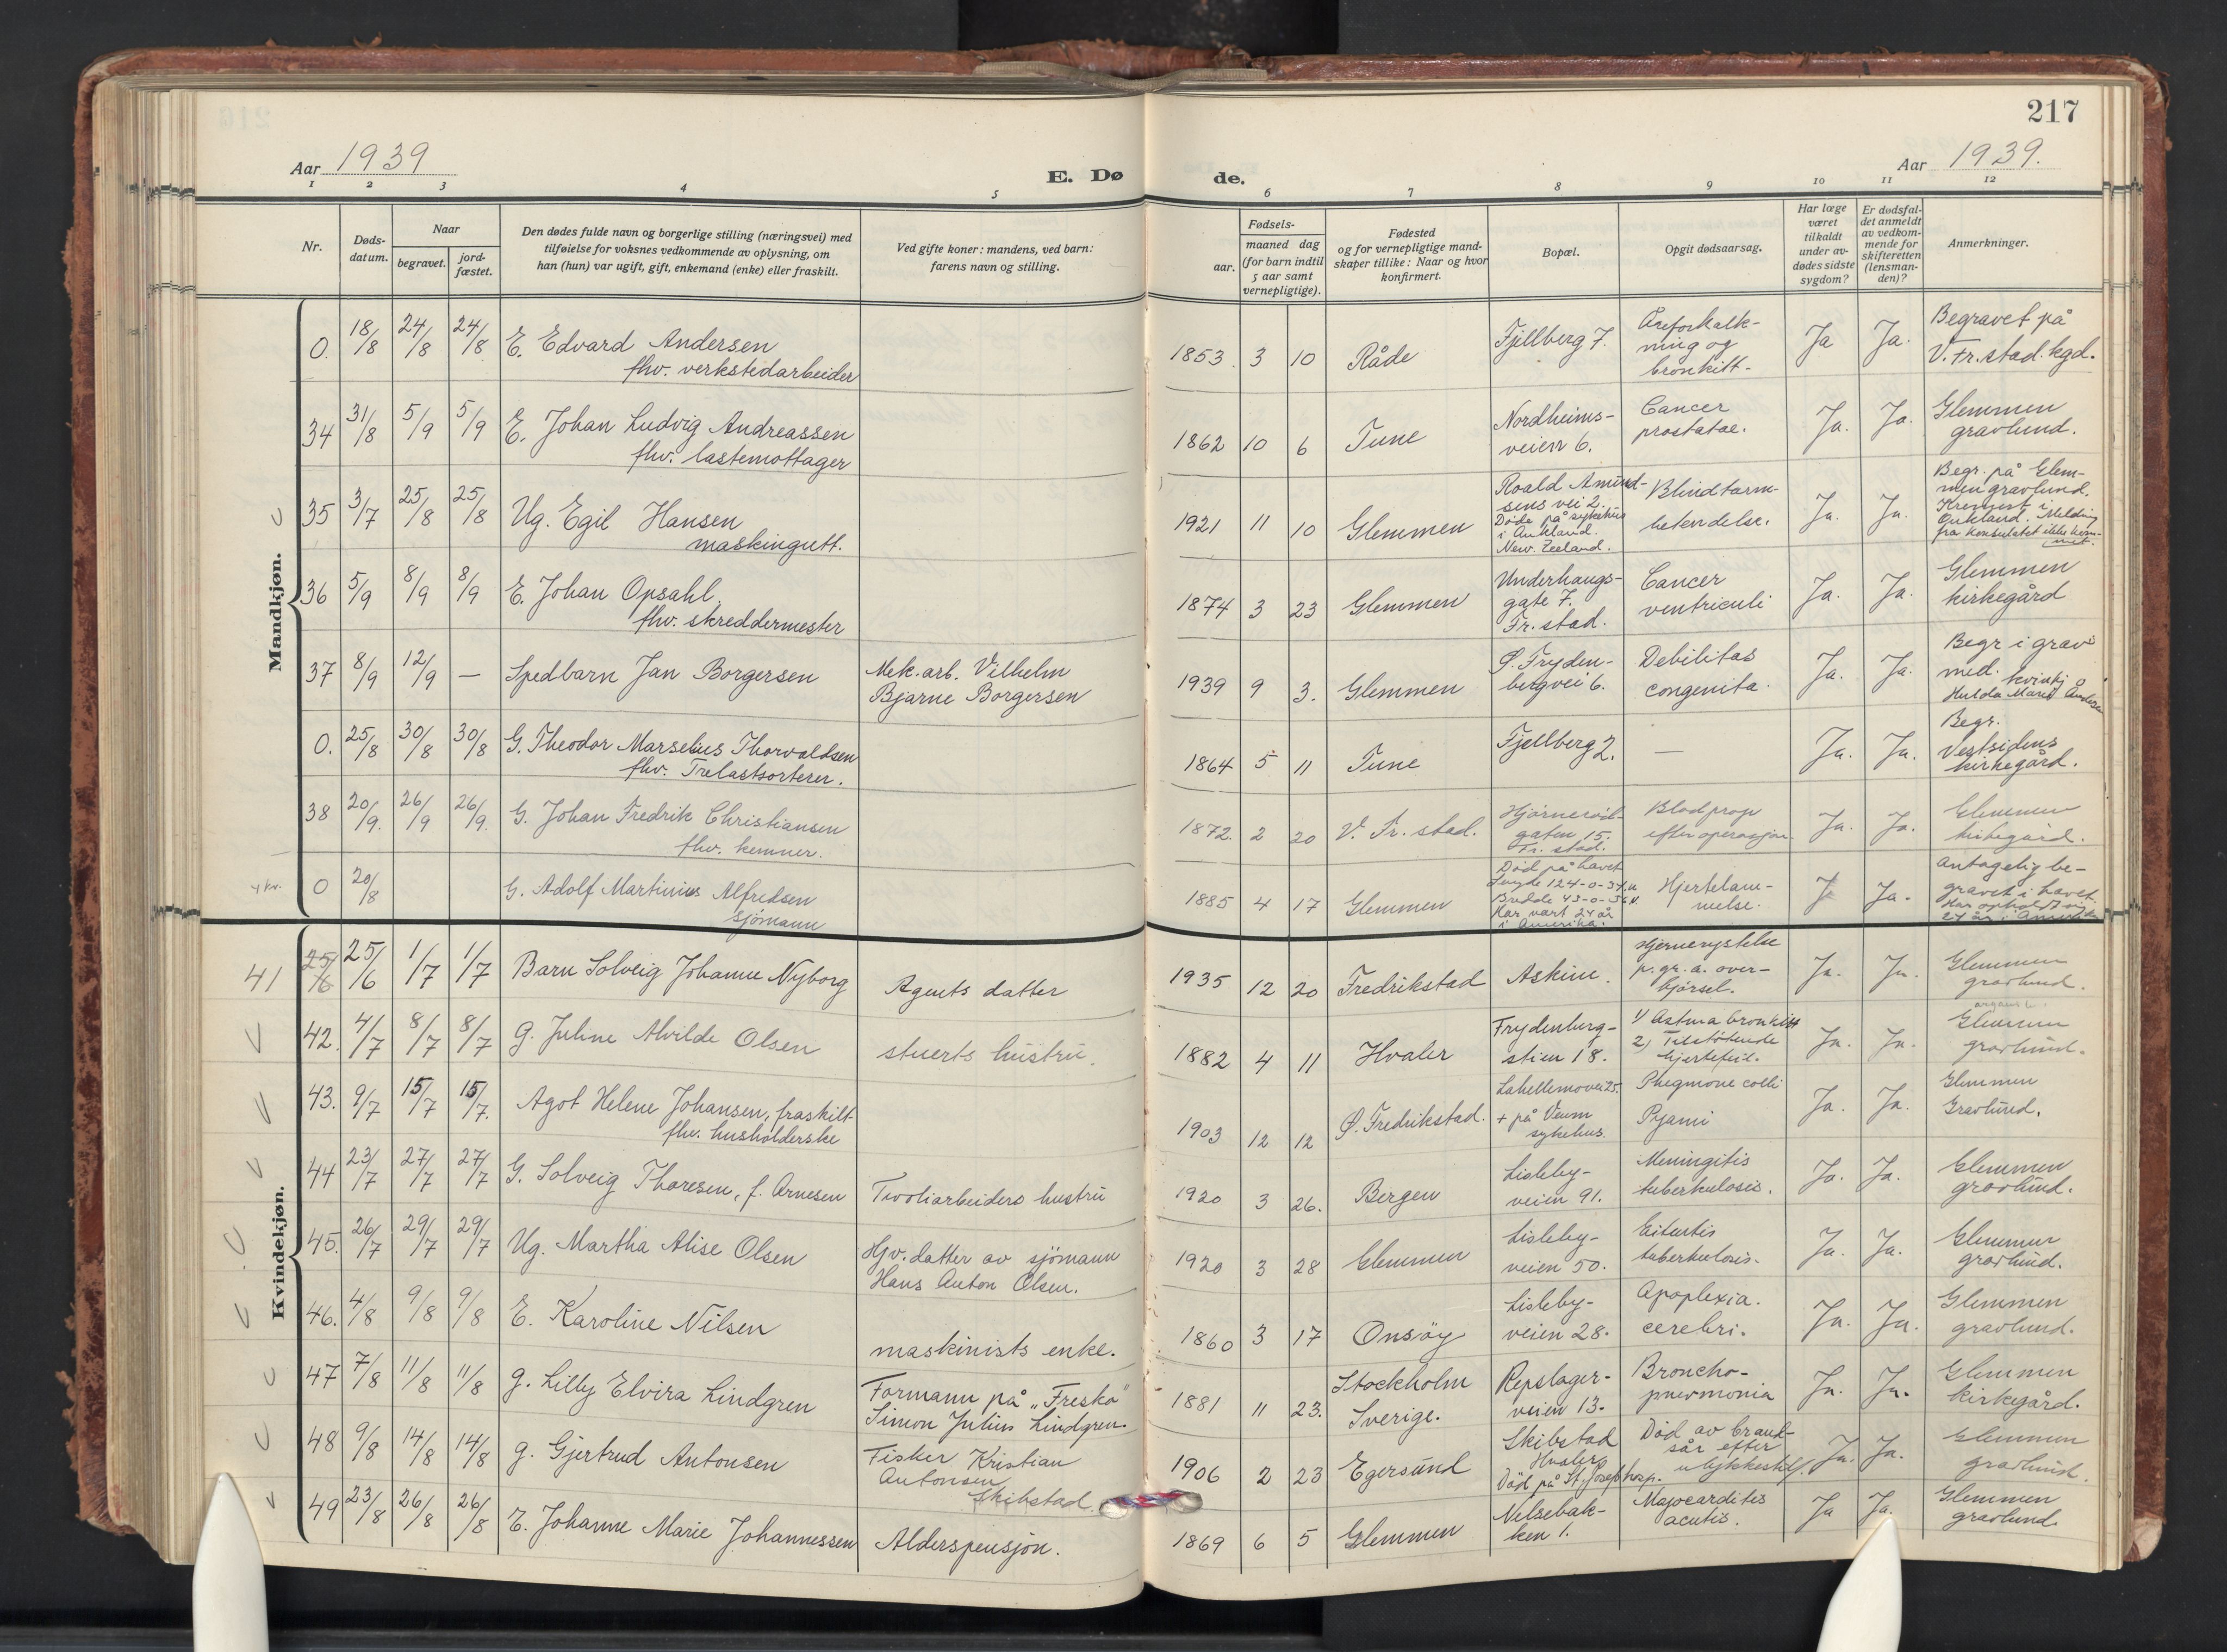 217
Aar 1939
E. Døde.
Aar 1939.
1 2 3 4 5 6 7 8 9 10 11 12
Nr.
Døds-
datum.
Naar
begravet.
jord-
fæstet.
Den dødes fulde navn og borgerlige stilling (næringsvei) med
tilføielse for voksnes vedkommende av oplysning, om
han (hun) var ugift, gift, enkemand (enke) eller fraskilt.
Ved gifte koner: mandens, ved barn:
farens navn og stilling.
Fødsels-
aar.
maaned dag
(for barn indtil
5 aar samt
vernepligtige).
Fødested
og for vernepligtige mand-
skaper tillike: Naar og hvor
konfirmert.
Bopæl.
Opgit dødsaarsag.
Har læge
været
tilkaldt
under av-
dødes sidste
sygdom?
Er dødsfal-
det anmeldt
av vedkom-
mende for
skifteretten
(lensman-
den)?
Anmerkninger.
Mandkjøn.
0. 18/8 24/8 24/8 E. Edvard Andersen
fhv. verkstedarbeider
1853 3 10 Råde
Fjellberg 7.
Åreforkalk-
ning og
bronkitt-
Ja Ja.
Begravet på
V. Fr.stad. kgd.
34 31/8 5/9 5/9 E. Johan Ludvig Andreassen
fhv. lastemottager
1862 10 6 Tune
Nordheims-
veien 6.
Cancer
prostatae.
Ja. Ja.
Glemmen
gravlund.
35 3/7 25/8 25/8 Ug. Egil Hansen
maskingutt.
1921 11 10 Glemmen
Roald Amund-
sens vei 2.
Døde på sykehus
i Aukland.
New. Zeeland.
Blindtarm-
betendelse.
Ja. Ja.
Begr. på Glem-
men gravlund.
Kremert i
Aukland. Melding
fra konsulatet ikke kom-
met.
36 5/9 8/9 8/9 E. Johan Opsahl.
fhv. skreddermester
1874 3 23 Glemmen
Underhaugs-
gate 7.
Fr. stad.
Cancer
ventriculi
Ja. Ja.
Glemmen
kirkegård
37 8/9 12/9 — Spedbarn Jan Borgersen
Mek. arb. Vilhelm
Bjarne Borgersen
1939 9 3. Glemmen
Ø. Fryden-
bergvei 6.
Debilitas
congenita.
Ja. Ja.
Begr i grav
med. kvinkj
Hulda Marie Andersen
0. 25/8 30/8 30/8 G. Theodor Marselius Thorvaldsen
fhv. Trelastsorterer.
1864 5 11 Tune
Fjellberg 2.
—
Ja. Ja.
Begr.
Vestsidens
kirkegård.
38 20/9. 26/9 26/9. G. Johan Fredrik Christiansen
fhv. kemner.
1872. 2 20 V. Fr. stad.
gaten 15.
Fr. stad.
Blodprop
efter operasjon.
Ja. Ja.
Glemmen
kirkegård.
0 20/8 G. Adolf Martinius Alfredsen
sjømann
1885 4 17 Glemmen
Død på havet
Lengde 124-0-34.
Bredde 43-0-36
Har vært 24 år
i Amerika.
Hjertelam-
melse.
J Ja.
Antagelig be-
gravet i havet.
Har opholdt sig
24 år i Amerika
Kvindekjøn.
41 25/6 25/6 1/7 1/7 Barn Solveig Johanne Nyborg
Agents datter
1935 12 20 Fredrikstad
Askim.
Hjernerystelse
p. gr. a. over-
kjørsel.
Ja. Ja.
Glemmen
gravlund.
42. 4/7 8/7 8/7 g. Juline Alvilde Olsen
stuerts hustru.
1882 4 11 Hvaler
Frydenberg-
stien 18.
1) Astma bronkitt
2) Tilstøtende
hjertefeil.
Ja. Ja.
Glemmen
gravlund.
43. 9/7 15/7 15/7. Agot Helene Johansen, fraskilt
fhv. husholderske
1903 12 12 Ø. Fredrikstad.
Lahellemovei 25.
+ på Veum
sykehus.
Phegmone colli
Pyami
Ja. Ja.
Glemmen
Gravlund.
44 23/7 27/7 27/7 G. Solveig Thoresen, f. Arnesen
Tivoliarbeiders hustru
1920 3 26. Bergen
Lisleby-
veien 91.
Meningitis
tuberkulosis.
Ja. Ja.
Glemmen
gravlund.
45. 26/7 29/7 29/7 Ug. Martha Alise Olsen
Hjv. datter av sjømann
Hans Anton Olsen.
1920 3 28 Glemmen
Lisleby-
veien 50.
tuberkulosis.
Ja. Ja.
Glemmen
gravlund.
46. 4/8 9/8 9/8 E. Karoline Nilsen
maskinists enke.
1860 3 17 Onsøy
Lisleby-
veien 28.
Apoplexia.
cerebri.
Ja. Ja.
Glemmen
gravlund.
47 7/8 11/8 11/8 g. Lilly Elvira Lindgren
Formann på "Fresko"
Simon Julius Lindgren.
1881 11 23. Stockholm
Sverige.
Repslager-
veien 13.
Broncho-
pnevmonia
Ja. Ja.
Glemmen
kirkegård.
48 9/8 14/8 14/8 g. Gjertrud Antonsen
Fisker Kristian
Antonsen
Skibstad.
1906 2 23 Egersund
Skibstad
Hvaler
Død på St. Josef hosp.
Død av brand-
sår efter
ulykkestilf.
Ja. Ja.
Glemmen
gravlund.
49 23/8 26/8 26/8 E. Johanne Marie Johannessen
Alderspensjon.
1869 6 5 Glemmen
Nelsebak-
ken 1.
Myocarditis
acutis.
Ja Ja.
Glemmen
gravlund